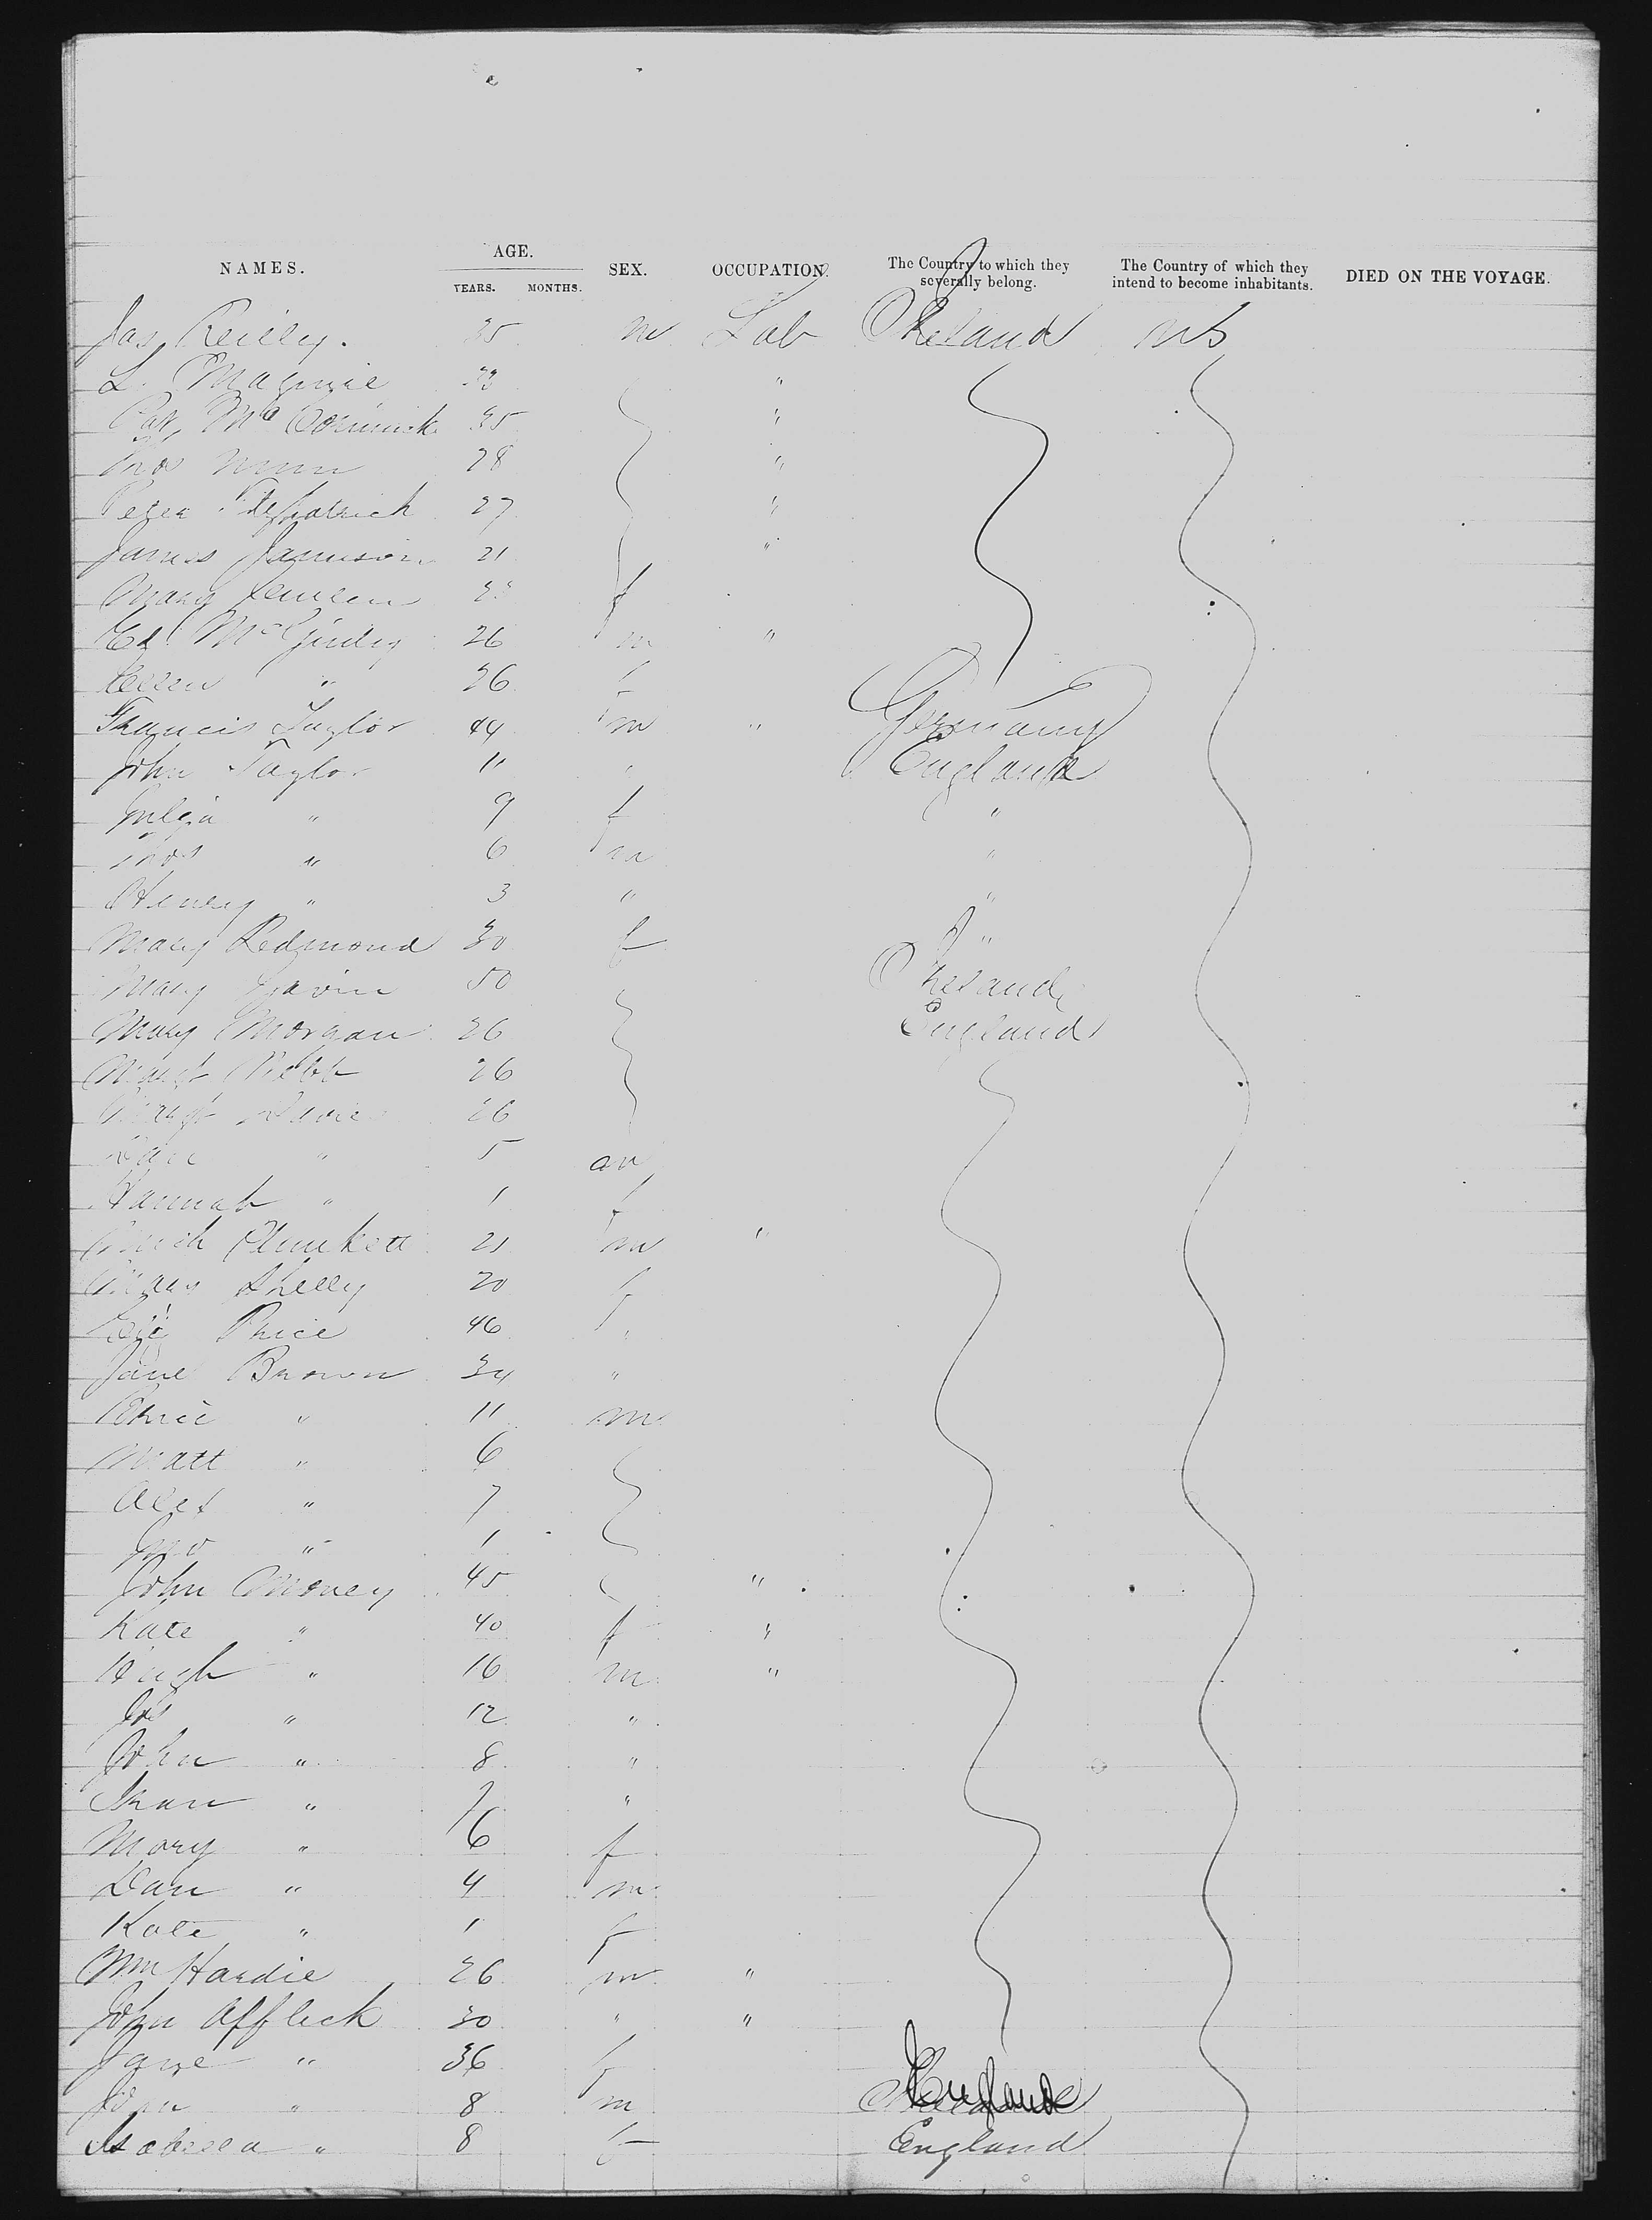 NAMES. AGE. YEARS. MONTHS. SEX. OCCUPATION. The Country to which they severally belong. The Country of which they intend to become inhabitants. DIED ON THE VOYAGE.
Jas Reilly. 35 m Lab Ireland US
L. Maguire 33 "
Pat Mc Cormick 35 "
Thos Nunn 28 "
Peter Fitzpatrick 27 "
James Jamieson 21 "
Mary f
Ed McGinley 26 m "
Ellen " 26 f
Francis Taylor 44 m " Germany
John Taylor 11 " England
Julia " 9 f "
Thos " 6 m "
Henry " 3 " "
Mary Redmond 30 f "
Mary Gavin 50 Ireland
Mary Morgan 26 England
Margt Webb 26
Margt Davies 26
Dave " 5 m
Hannah " 1 f
Mich Plunkett 21 m "
Mary Shelly 20 f
Price 46 "
Jane Brown 34 "
" 11 m
Matt " 6
Alex " 7
Jno " 1
John Money 45 "
Kate " 40 f "
Hugh " 16 m "
Jos " 12 "
John " 8 "
" 7 "
Mary " 6 f
Dan " 4 m
Kate " 1 f
Wm Hardie 26 m "
John Affleck 30 " "
Jane " 36 f
John " 8 m
Isabella " 8 f England